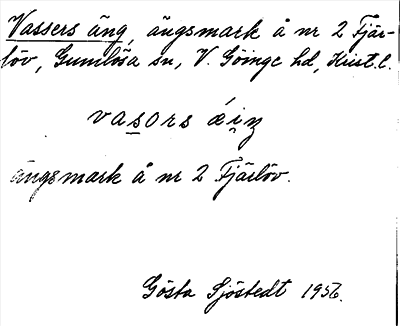 Vassers äng, ängsmark å nr 2 Fjär-
löv, Gumlösa sn, V. Göinge hd, Krist. l.
vasors ä́i̯ŋ
ängsmark å nr 2 Fjärlöv.
Gösta Sjöstedt 1956.